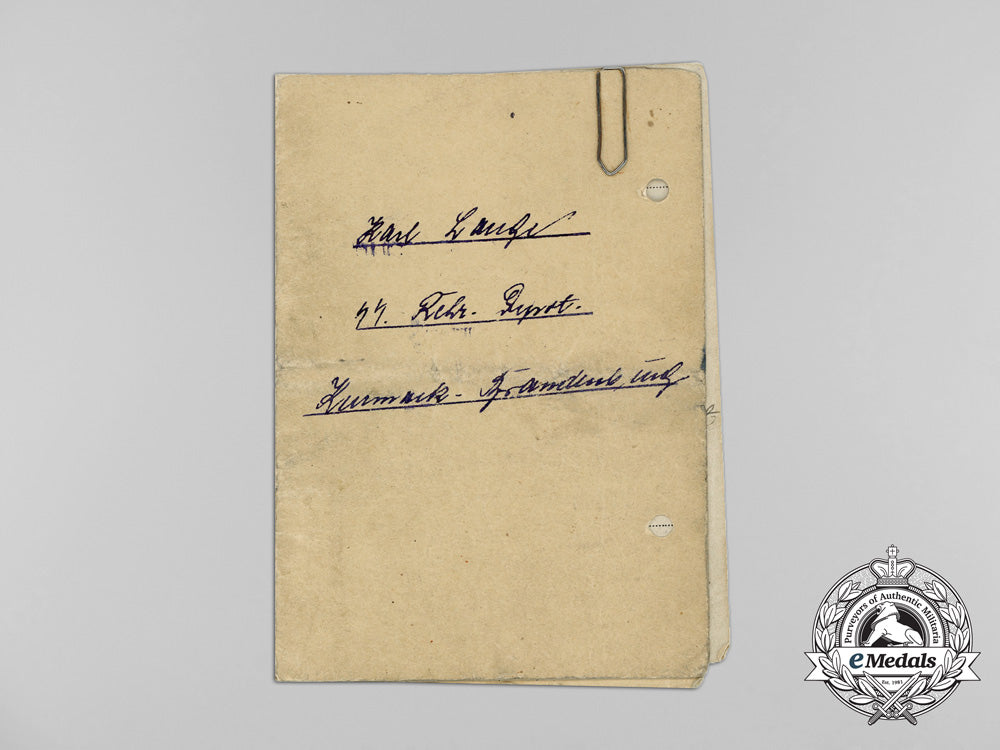 Karl Lange
44. Rekr. Depot.
Kurmark - Brandenburg
Purveyors of Authentic Militaria
eMedals
Est. 1981